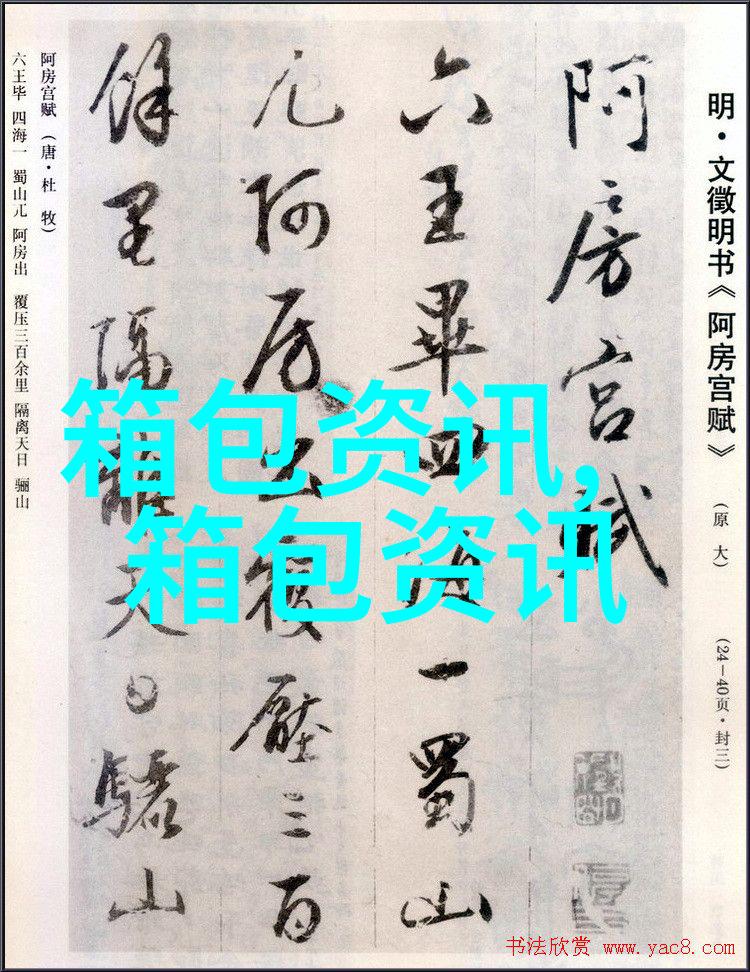 明·文徵明书《阿房宫赋》 (原大) (24—40页·封三)
阿房宮賦
六王畢四海一蜀山
兀阿房出覆壓三百
餘里隔離天日驪山
阿房宫赋 (唐·杜 牧)
六王毕 四海一 蜀山兀 阿房出 覆压三百余里 隔离天日 骊山
箱包资讯,
箱包资讯
书法欣赏 www.yac8.com